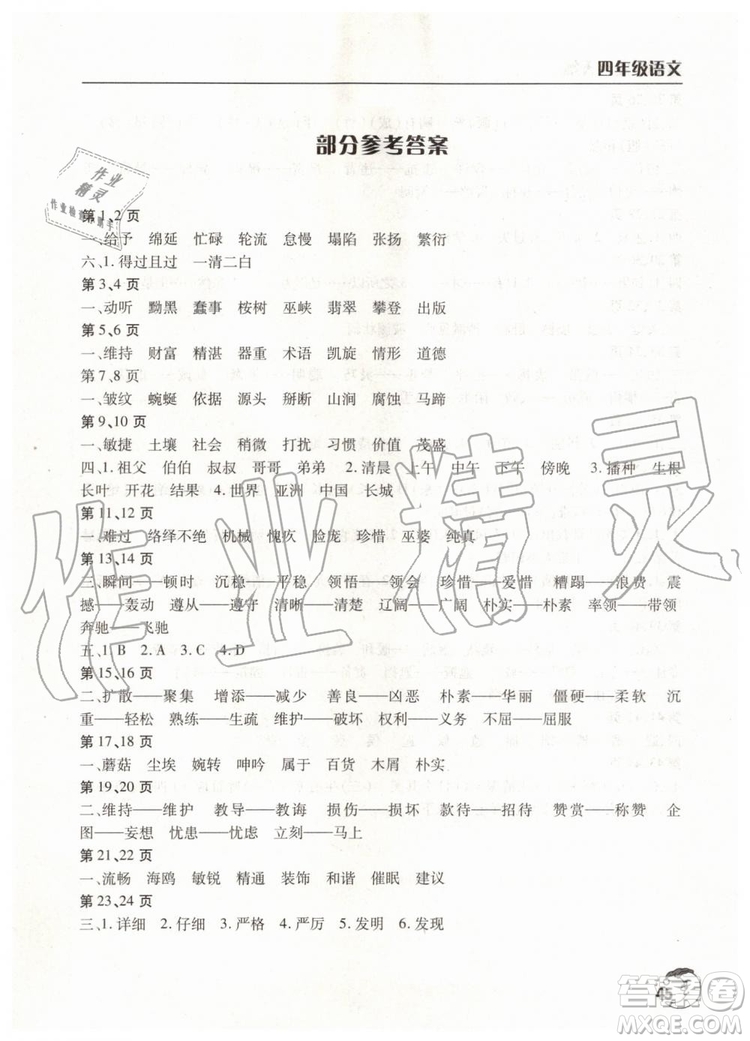 四年级语文
部分参考答案
作业
精灵
第1,2页
一、给予 绵延 忙碌 轮流 怠慢 塌陷 张扬 繁衍
六、1.得过且过 一清二白
第3,4页
一、动听 黝黑 蠢事 桉树 巫峡 翡翠 攀登 出版
第5,6页
一、维持 财富 精湛 器重 术语 凯旋 情形 道德
第7,8页
一、皱纹 蜿蜒 依据 源头 掰断 山涧 腐蚀 马蹄
第9,10页
一、敏捷 土壤 社会 稍微 打扰 习惯 价值 茂盛
四、1.祖父 伯伯 叔叔 哥哥 弟弟 2.清晨 上午 中午 下午 傍晚 3.播种 生根
长叶 开花 结果 4.世界 亚洲 中国 长城
第11,12页
一、难过 络绎不绝 机械 愧疚 脸庞 珍惜 巫婆 纯真
第13,14页
三、瞬间——顿时 沉稳——平稳 领悟——领会 珍惜——爱惜 糟蹋——浪费 震
撼——轰动 遵从——遵守 清晰——清楚 辽阔——广阔 朴实——朴素 率领——带领
奔驰——飞驰
五、1.B 2.A 3.C 4.D
第15,16页
二、扩散——聚集 增添——减少 善良——凶恶 朴素——华丽 僵硬——柔软 沉
重——轻松 熟练——生疏 维护——破坏 权利——义务 不屈——屈服
第17,18页
一、蘑菇 尘埃 婉转 呻吟 属于 百货 木屑 朴实
第19,20页
二、维持——维护 教导——教诲 损伤——损坏 款待——招待 赞赏——称赞 企
图——妄想 忧患——忧虑 立刻——马上
第21,22页
一、流畅 海鸥 敏锐 精通 装饰 和谐 催眠 建议
第23,24页
三、1.详细 2.仔细 3.严格 4.严厉 5.发明 6.发现
45
作业精灵
答案圈
MXQE.COM